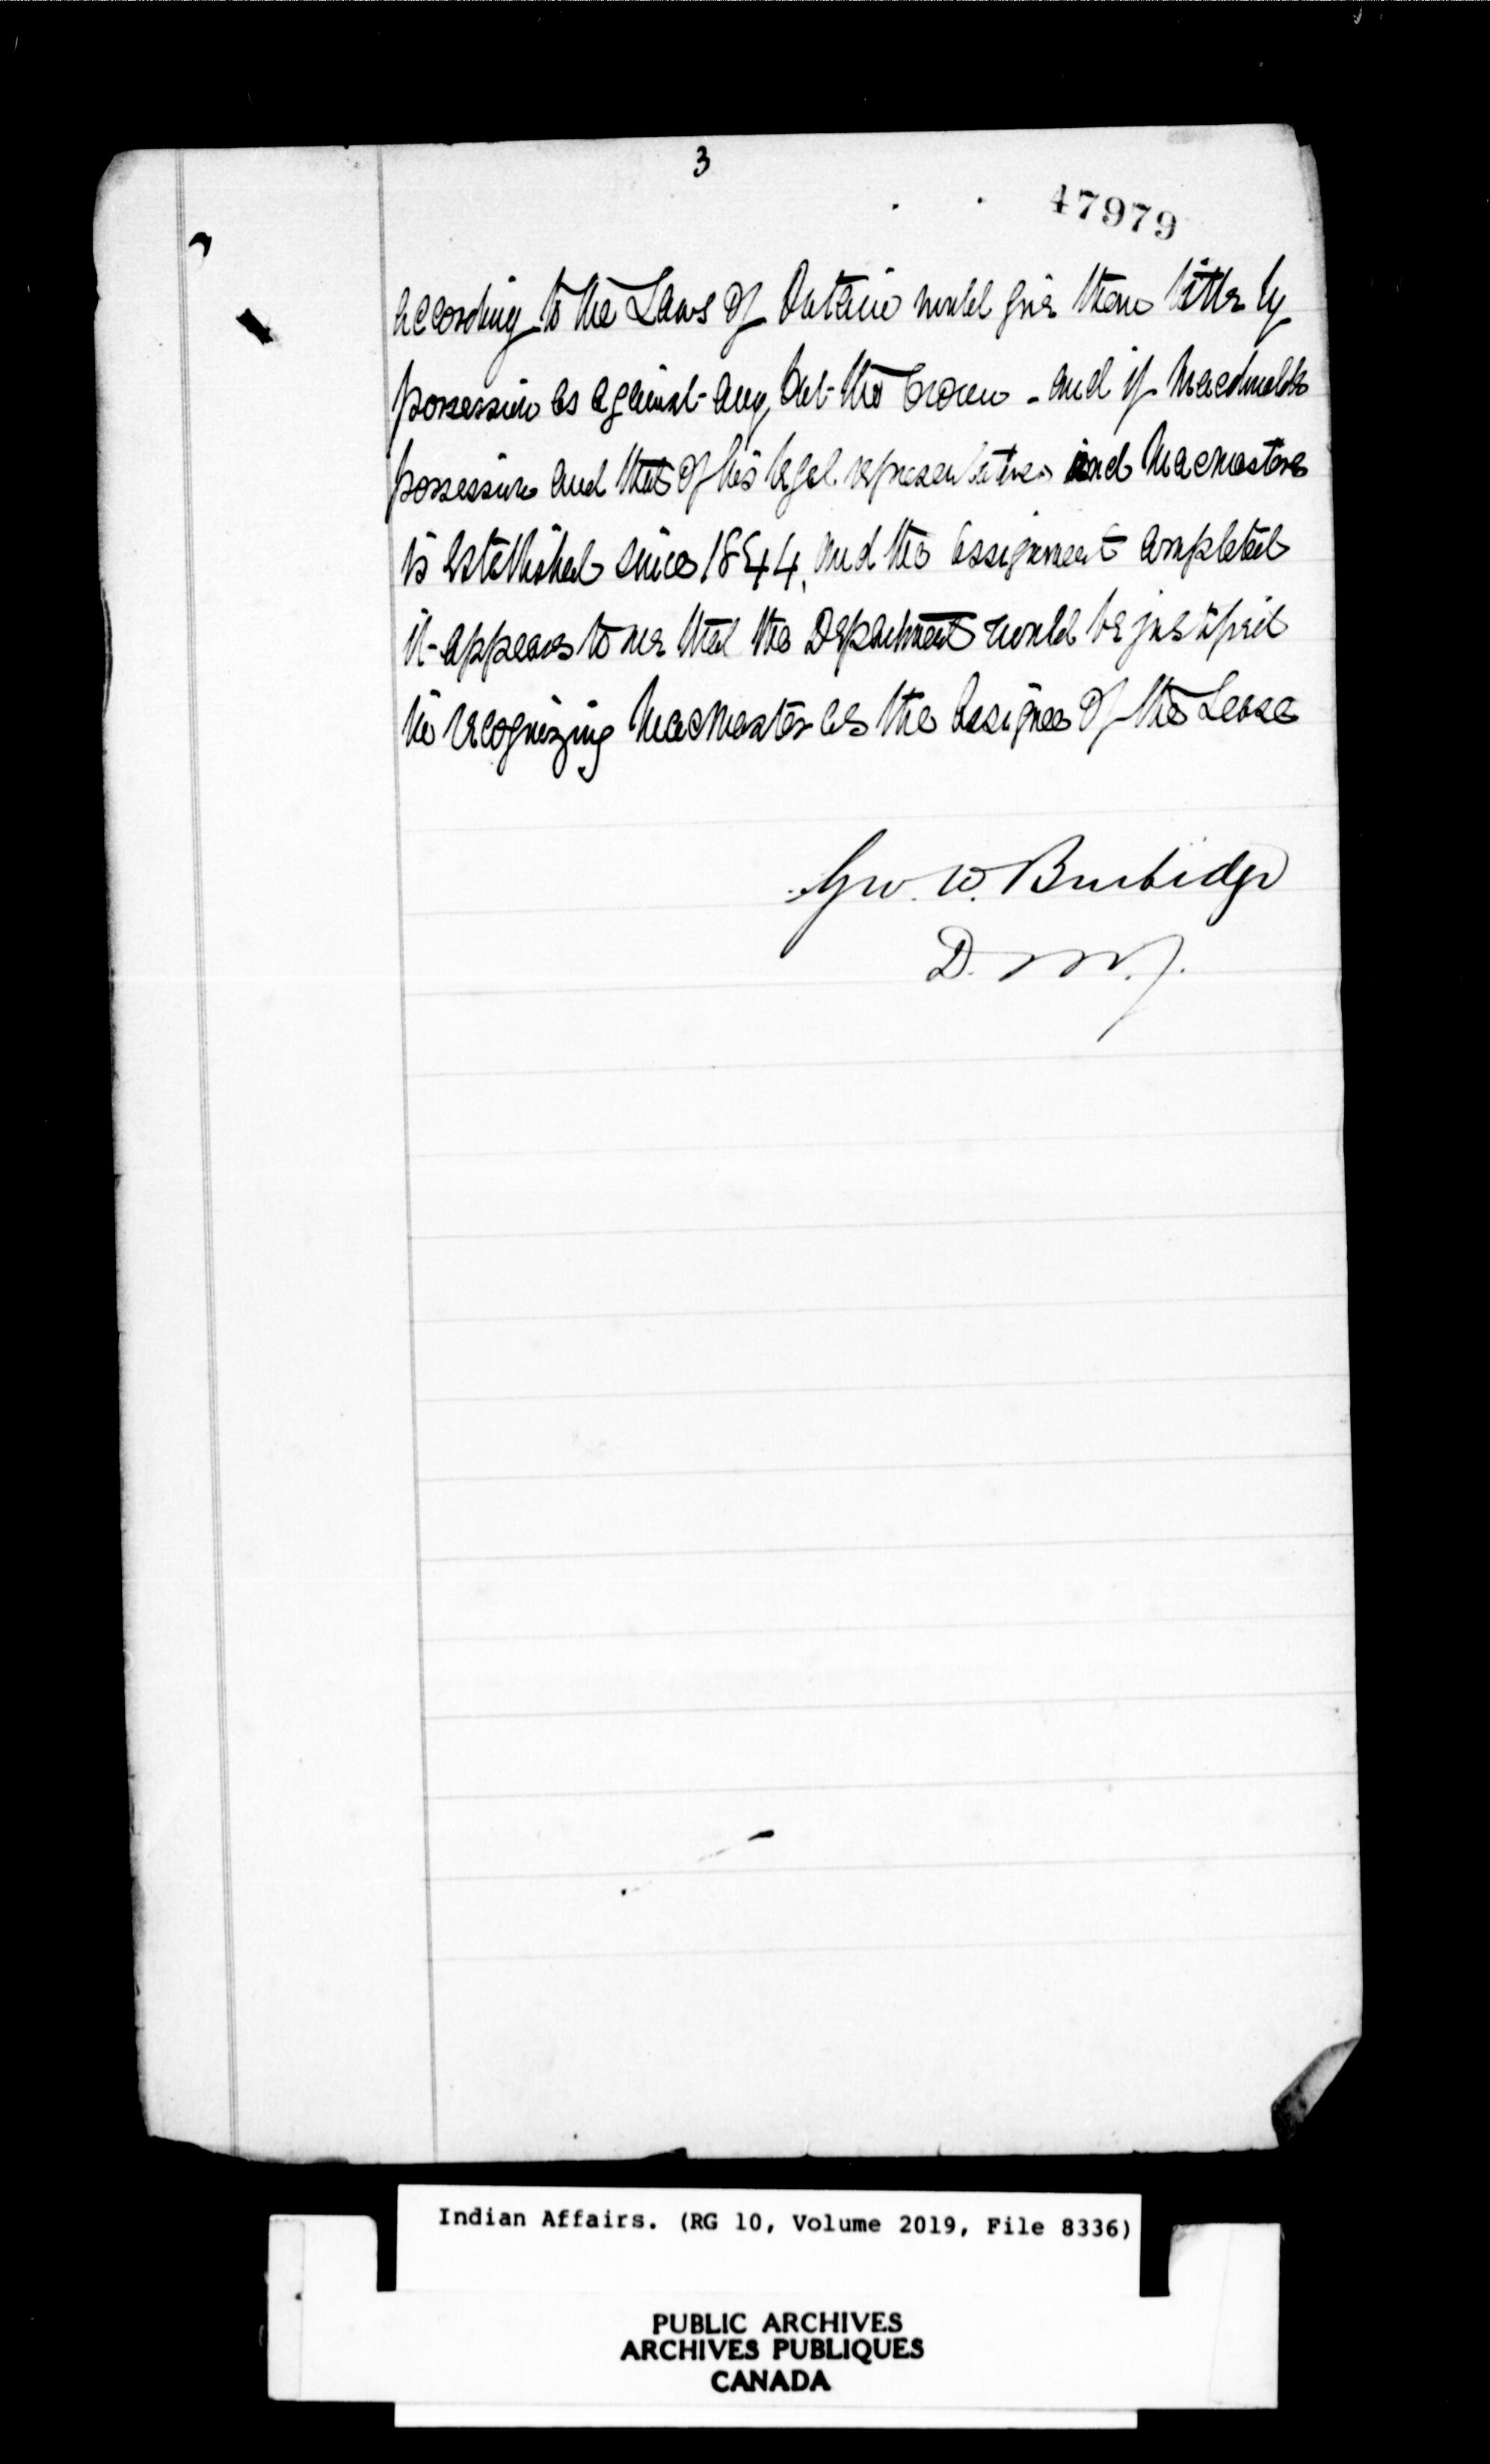 3
47979
according to the Laws of Ontario would give them title by
possession as against any but the Crown - and if Macdonalds
possession and that of his legal representatives and Macmasters
is established since 1844, and the assignment completed
it appears to me that the Department would be justified
in recognizing Macmaster as the assignee of the Lease
Geo. W. Burbidge
D. M. J.
Indian Affairs. (RG 10, Volume 2019, File 8336)
PUBLIC ARCHIVES
ARCHIVES PUBLIQUES
CANADA